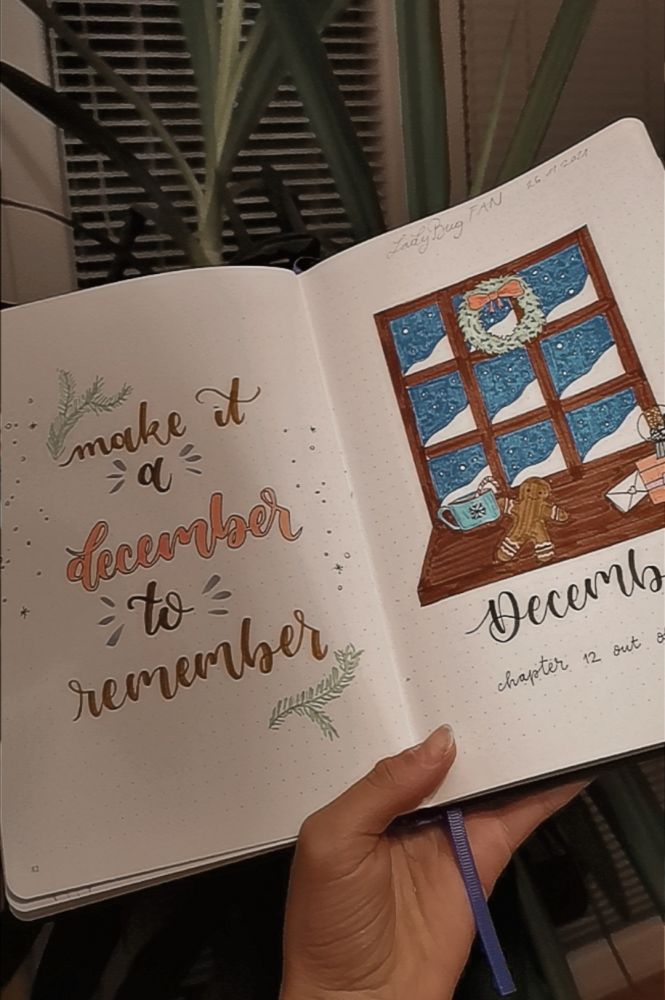 make it
a
december
to
remember
LadyBug FAN 26.11.2021
Decemb
chapter 12 out